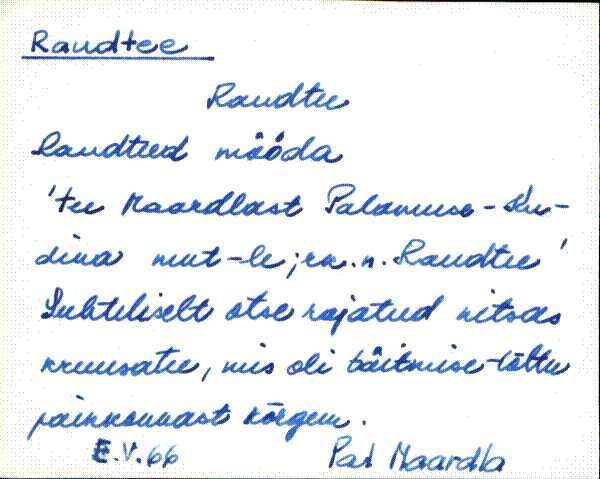 Raudtee
Raudtee
Raudteed mööda
'tee Maardlast Palamuse-Ku-
dina mnt-le; rn.n. Raudtee'
Suhteliselt otse rajatud kitsas
kruusatee, mis oli täitmise tõttu
paikkonnast kõrgem.
E.V.66 Pal Maardla